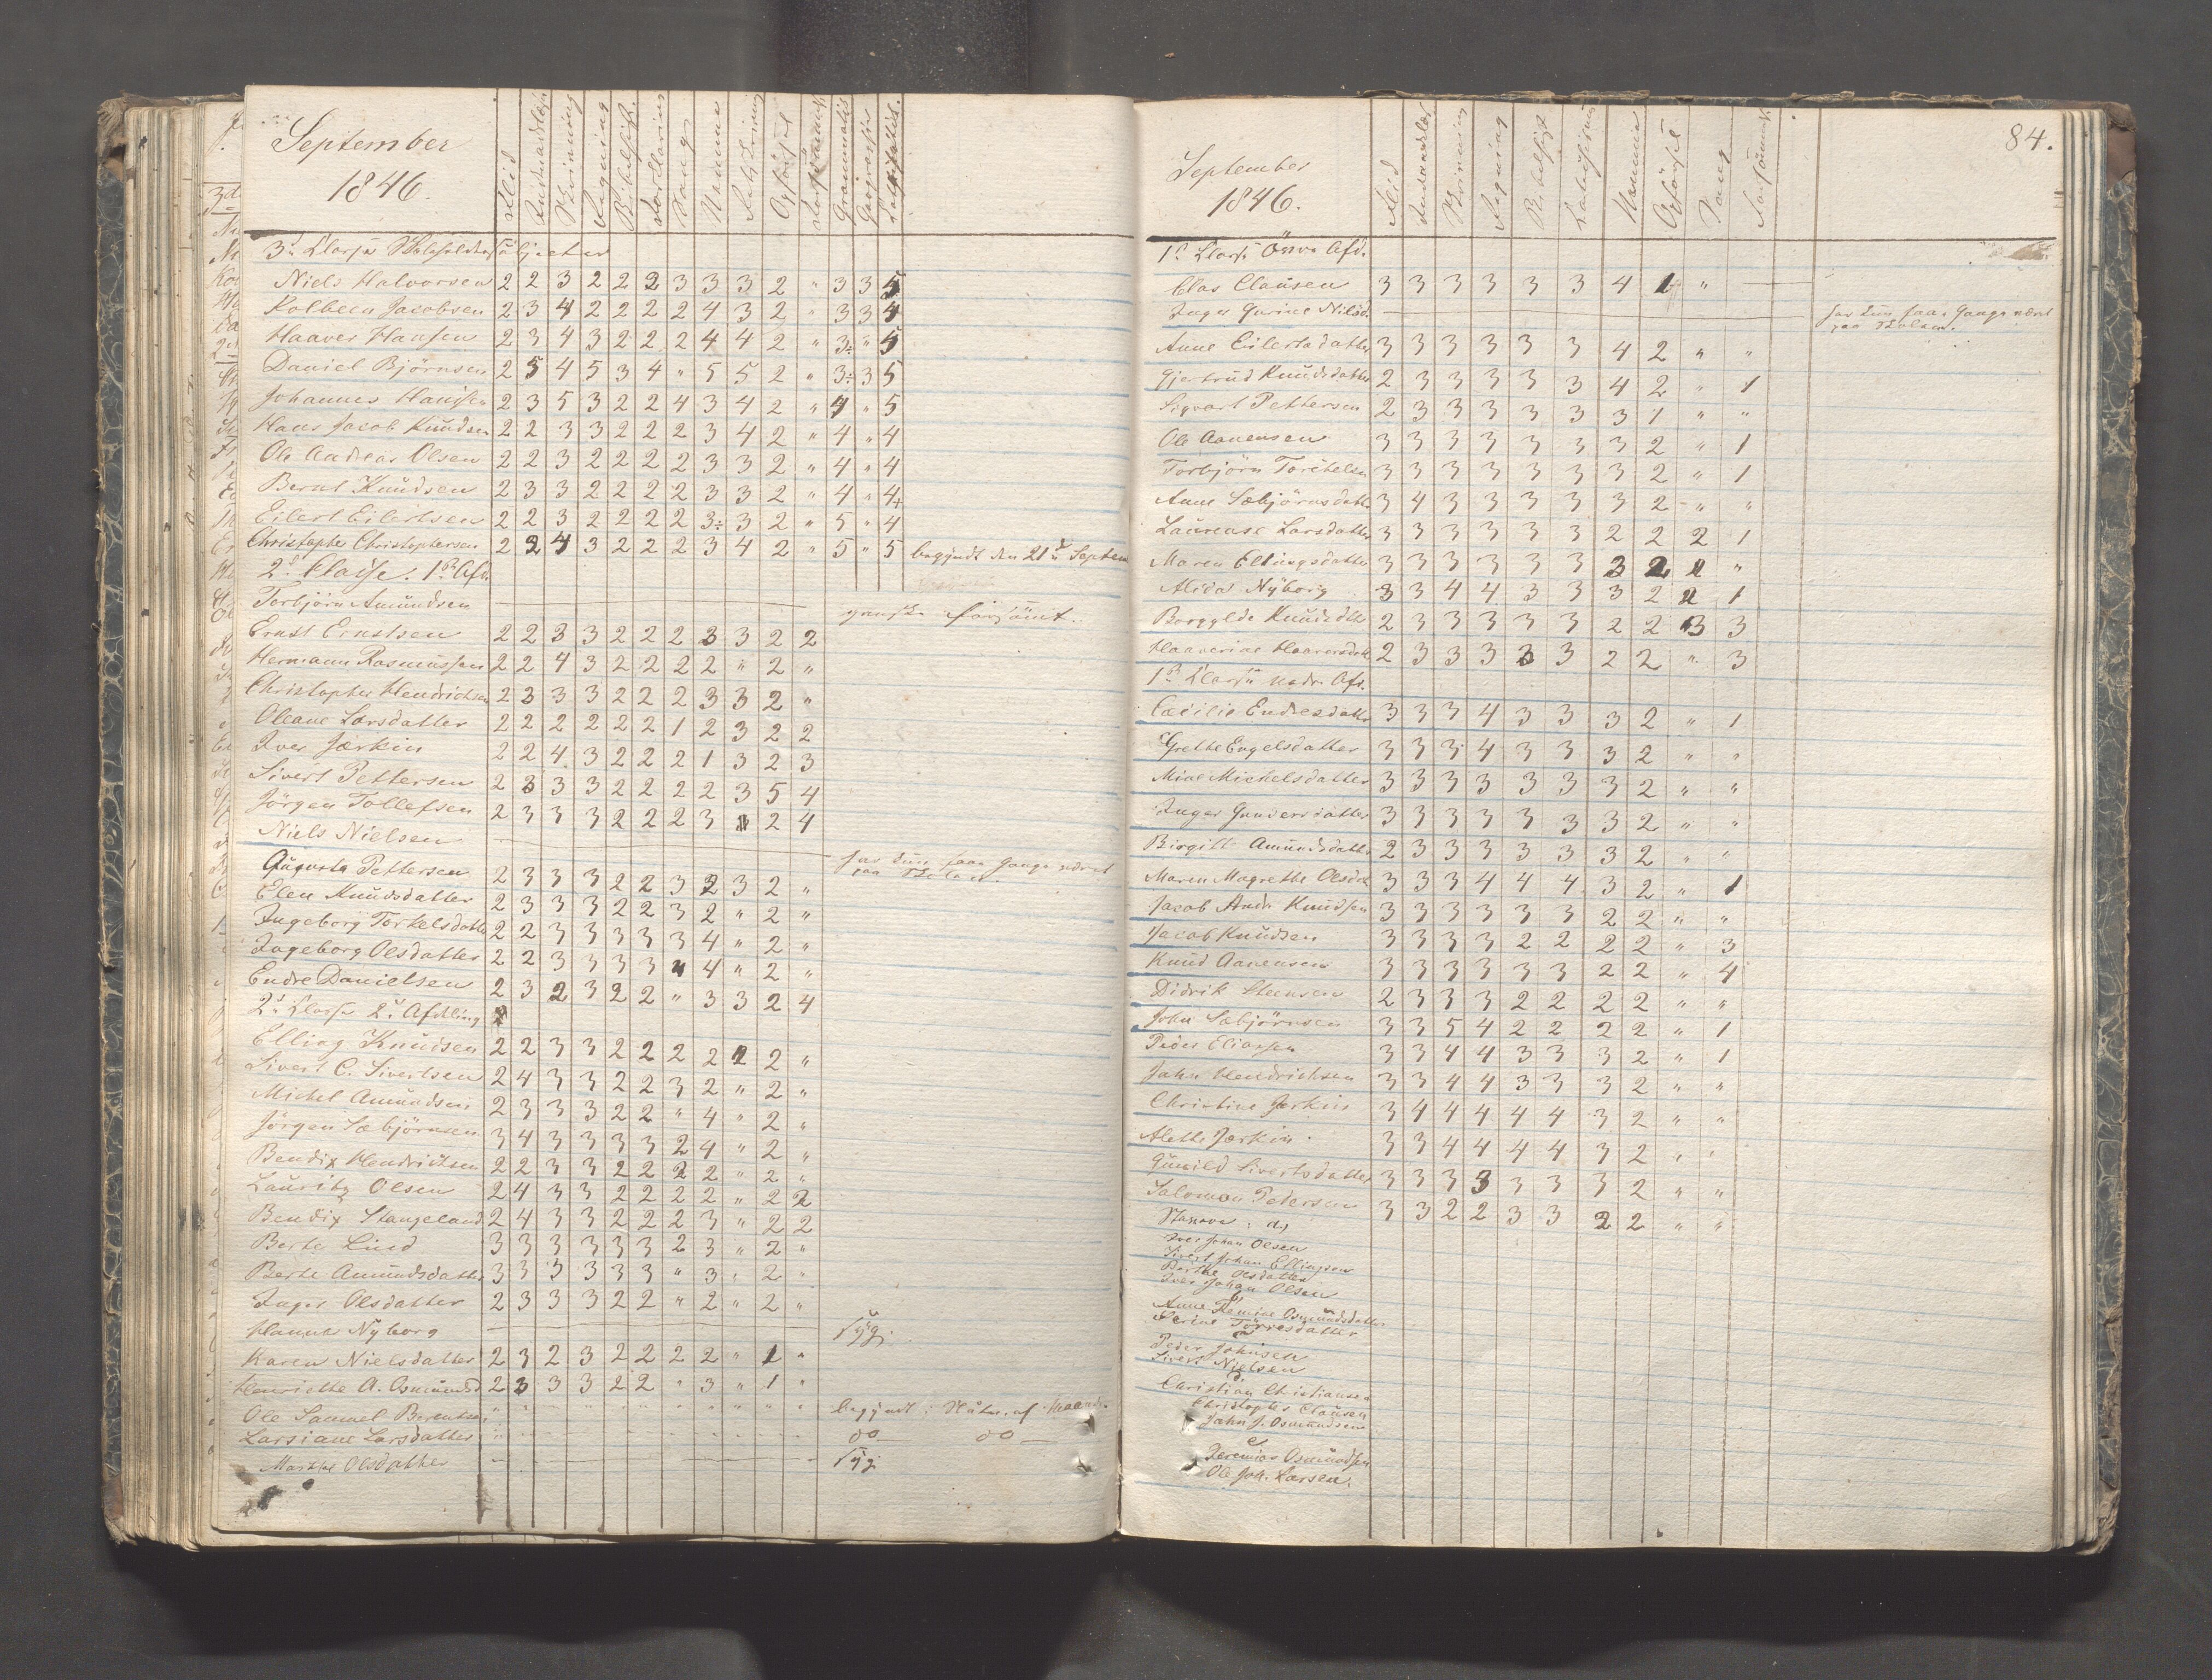 September
1846.
Flid Indenadslæsn. Skrivning Regning Bibelhist. Forklaring Sang Hannem Retskrivning Opførsel Forsømmels. Grammatik Geographie
3d Klasse
Niels Halvorsen 2 2 3 2 2 2 3 3 3 2 " 3 3 5
Kolbeen Jacobsen 2 3 4 2 2 2 2 4 3 2 " 3 3 4
Haaver Hansen 2 3 4 3 2 2 2 4 4 2 " 3÷ " 5
Daniel Björnsen 2 5 4 5 3 4 " 5 5 2 " 3÷ 3 5
Johannes Hansen 2 3 5 3 2 2 4 3 4 2 " 4 " 5
Hans Jacob Knudsen 2 2 3 3 2 2 2 3 4 2 " 4 " 4
Ole Andreas Olsen 2 2 3 2 2 2 2 3 3 2 " 4 " 4
Bernt Knudsen 2 3 3 2 2 2 2 3 3 2 " 4 " 4+
Eilert Eilertsen 2 2 3 2 2 2 2 3÷ 3 2 " 5 " 4
Christopher Christophersen 2 2 4 3 2 2 2 3 4 2 " 5 " 5 begyndt den 21d Septem
2d Classe. 1ste Afd.
Torbjörn Amundsen ganske forsömt.
Ernst Ernstsen 2 2 3 3 2 2 2 3 3 2 2
Hermann Rasmussen 2 2 4 3 2 2 2 2 " 2 "
Christopher Hendrichsen 2 3 3 3 2 2 2 3 3 2 "
Oleane Larsdatter 2 2 2 2 2 2 1 2 3 2 2
Iver Jærkin 2 2 4 3 2 2 2 1 3 2 3
Sivert Pettersen 2 3 3 3 2 2 2 2 3 5 4
Jörgen Tollefsen 2 3 3 3 2 2 2 3 " 2 4
Niels Nielsen har kun faae Gange været paa Skolen.
Augusta Pettersen 2 3 3 3 2 2 3 2 3 2 "
Elen Knudsdatter 2 3 3 3 2 2 3 2 " 2 "
Ingeborg Torkelsdatter 2 2 3 3 3 3 3 4 " 2 "
Ingeborg Olsdatter 2 2 3 3 3 3 4 4 " 2 "
Endre Danielsen 2 3 2 3 2 2 " 3 3 2 4
2d Klasse 2d Afdeling
Elling Knudsen 2 2 3 3 2 2 2 2 2 2 "
Sivert C. Sivertsen 2 4 3 3 2 2 3 2 " 2 "
Michel Amundsen 2 3 3 3 2 2 " 4 " 2 "
Jörgen Sæbjörnsen 3 4 3 3 3 3 2 4 " 2 "
Bendix Hendrichsen 2 2 3 3 2 2 2 2 " 2 "
Lauritz Olsen 2 4 3 3 2 2 2 2 " 2 2
Bendix Stangeland 2 4 3 3 2 2 2 3 " 2 2
Berte Lind 3 3 3 3 3 3 2 3 " 2 "
Berte Amundsdatter 3 3 3 3 3 3 " 3 " 2 "
Inger Olsdatter 2 3 3 3 2 2 " 2 " 2 "
Hanna Nyborg syg.
Karen Nielsdatter 2 3 2 3 2 2 2 2 " 1 "
Henriette A. Osmundsd 2 3 3 3 2 2 " 3 " 1 "
Ole Samuel Berentsen begyndt i Slutn. af Maaned.
Larsiane Larsdatter do do
Marthe Olsdatter syg
84.
September
1846.
Flid Indenadslæs Skrivning Regning Bibelhist Hannem Opførsel Sang Forsømmels.
1ste Klasse Övre Afd.
Clas Clausen 3 3 3 3 3 3 4 1 "
Inger Gurine Nilsd. har kun faae Gange været paa Skolen.
Anne Eilertsdatter 3 3 3 3 3 3 4 2 " "
Gjertrud Knudsdatter 2 3 3 3 3 3 4 2 " 1
Sigvart Pettersen 2 3 3 3 3 3 3 1 " "
Ole Aanensen 3 3 3 3 3 3 3 2 " 1
Torbjörn Torchelsen 3 3 3 3 3 3 3 2 " 1
Anne Sæbjörnsdatter 3 4 3 3 3 3 3 2 " "
Laurense Larsdatter 3 3 3 3 3 3 2 2 2 1
Maren Ellingsdatter 3 3 3 3 3 3 3 2 2 "
Alida Nyborg 3 3 4 4 3 3 3 2 2 1
Borgylde Knudsdtr 2 3 3 3 3 3 2 2 3 3
Haaverine Haaversdtr 2 3 3 3 3 3 2 2 " 3
1ste Klasse nedre Afd.
Cecilie Endresdatter 3 3 3 4 3 3 3 2 " 1
Grethe Engelsdatter 3 3 3 4 3 3 3 2 " "
Mine Michelsdatter 3 3 3 3 3 3 3 2 " "
Inger Gundersdatter 3 3 3 3 3 3 3 2 " "
Birgitte Amundsdatter 2 3 3 3 3 3 3 2 " "
Maren Magrethe Olsdtr 3 3 3 4 4 4 3 2 " 1
Jacob Andr Knudsen 3 3 3 3 3 3 2 2 " "
Jacob Knudsen 3 3 3 3 2 2 2 2 " 3
Knud Aanensen 3 3 3 3 3 3 2 2 " 4
Didrik Steensen 2 3 3 3 2 2 2 2 " "
John Sæbjörnsen 3 3 5 4 2 2 2 2 " 1
Peder Eliassen 3 3 4 4 3 3 3 2 " 1
Jahn Hendrichsen 3 3 4 4 3 3 3 2 " "
Christine Jerkin 3 4 4 4 4 4 3 2 " "
Alette Jærkin 3 3 4 4 4 4 3 2 " "
Gunild Sivertsdatter 3 3 3 3 3 3 3 2 " "
Salomon Pedersen 3 3 2 2 3 3 2 2 " "
Iver Johan Olsen
Sivert Johan Ellingsen
Berthe Olsdatter
Iver Johan Olsen
Anne Stemine Osmundsdatter
Serine Törresdatter
Peder Johnsen
Sivert Nielsen
Christian Christiansen
Christopher Clausen
Jahn J. Osmundsen
Jeremias Osmundsen
Ole Joh. Larsen.